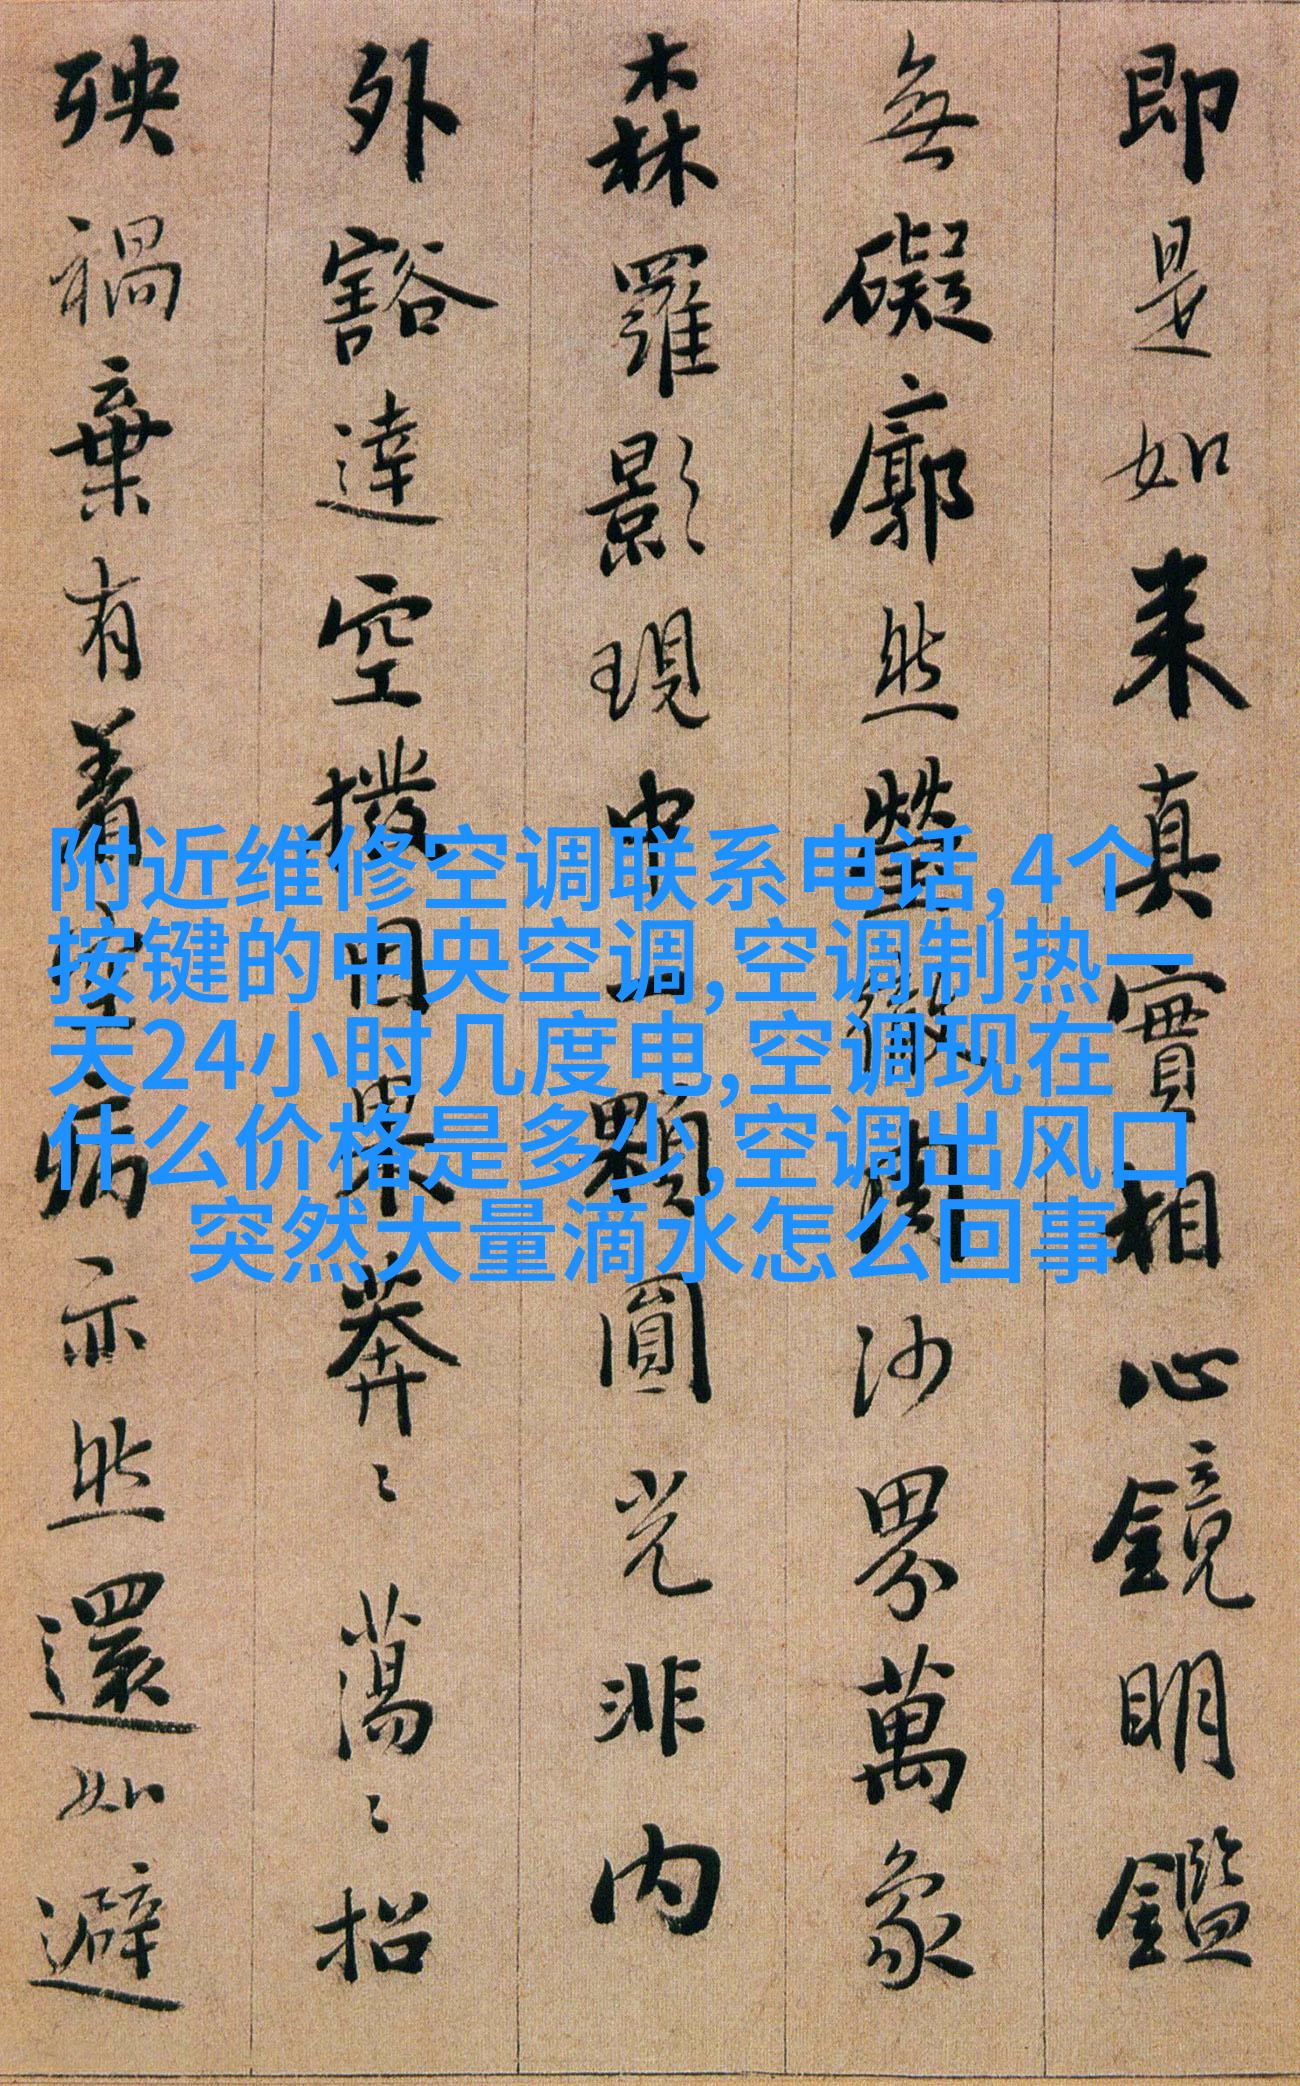 即是如来真實相心鏡明鑑
無礙廓然瑩徹周沙界萬象
森羅影現中一顆圓光非内
外豁達空撥因果莽〻蕩〻招
殃禍棄有着空病亦然還如避
附近维修空调联系电话,4个
按键的中央空调,空调制热一
天24小时几度电,空调现在
什么价格是多少,空调出风口
突然大量滴水怎么回事